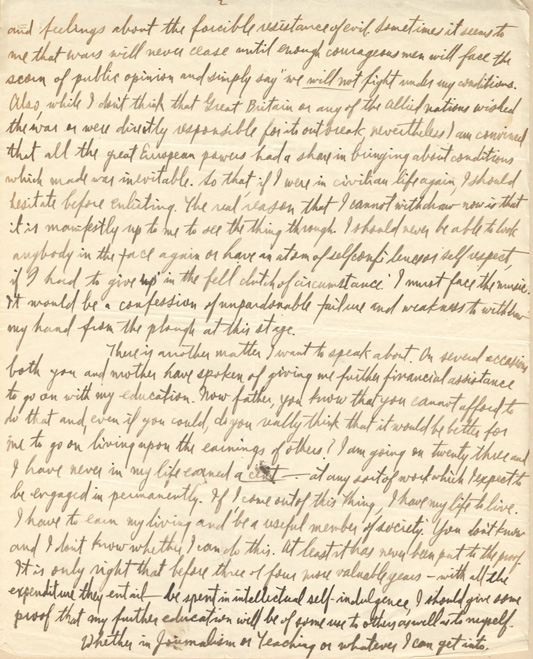 2
and feelings about the forcible resistance of evil sometimes it seems to
me that wars will never cease until enough courageous men will face the
scorn of public opinion and simply say "we will not fight under my conditions.
Also, while I don't think that Great Britain or any of the Allied nations wished
the war or were directly responsible for its outbreak, nevertheless I am convinced
that all the great European powers had a share in bringing about conditions
which made war inevitable. So that if I were in civilian life again, I should
hesitate before enlisting. The real reason that I cannot withdraw now is that
it is manifestly up to me to see the thing through. I should never be able to look
anybody in the face again or have an atom of self confidence or self respect,
if I had to give up 'in the fell clutch of circumstance.' I must face the music.
It would be a confession of unpardonable failure and weakness to withdraw
my hand from the plough at this stage.
There is another matter I want to speak about. On several occasions
both you and mother have spoken of giving me further financial assistance
to go on with my education. Now father, you know that you cannot afford to
do that and even if you could, do you really think that it would be better for
me to go on living upon the earnings of others? I am going on twenty three and
I have never in my life earned a cent — at any sort of work which I expect to
be engaged in permanently. If I come out of this thing, I have my life to live.
I have to earn my living and be a useful member of society. You don't know
and I don't know whether I can do this. At least it has never been put to the proof.
It is only right that before three or four more valuable years – with all the
expenditure they entail – be spent in intellectual self-indulgence, I should give some
proof that my further education will be of some use to others as well as to myself.
Whether in Journalism or Teaching or whatever I can get into.